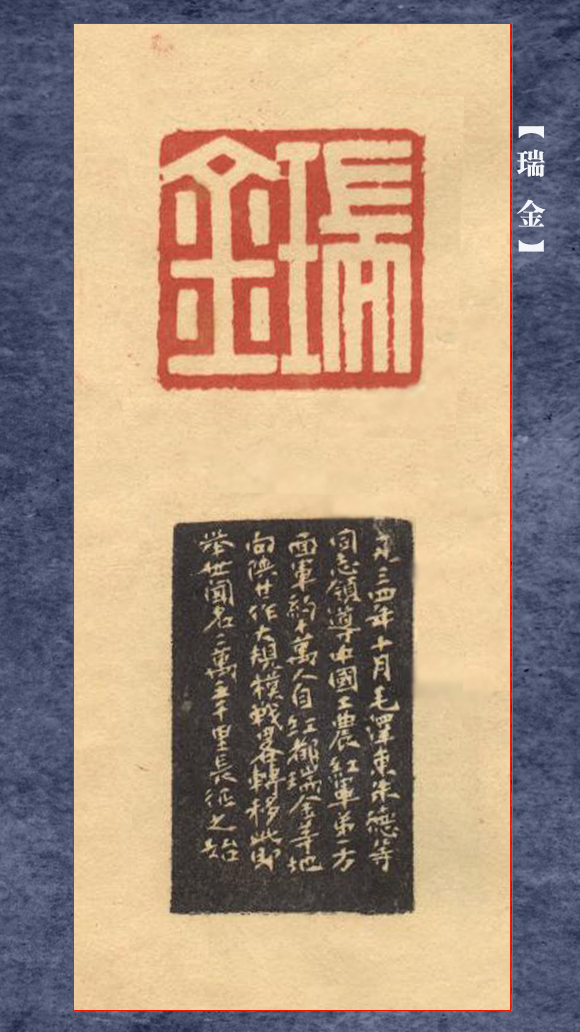 【瑞金】
瑞金
一九三四年十月毛澤東朱德等
同志領導中國工農紅軍第一方
面軍約十萬人自紅都瑞金等地
向陝甘作大規模戰畧轉移此即
舉世聞名二萬五千里長征之始